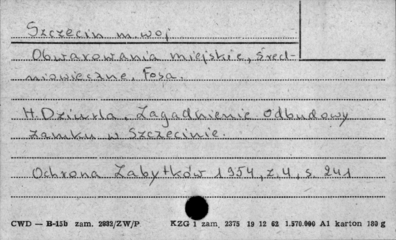 Szczecin m. woj
Obwarowania miejskie, śred-
niowieczne. Fosa.
H. Dziurla, Zagadnienie odbudowy
zamku w Szczecinie.
Ochrona Zabytków 1954, z. 4, s. 241
CWD — B-15b zam. 2032/ZW/P KZG 1 zam. 2375 19 12 62 1.570.000 A1 karton 180 g